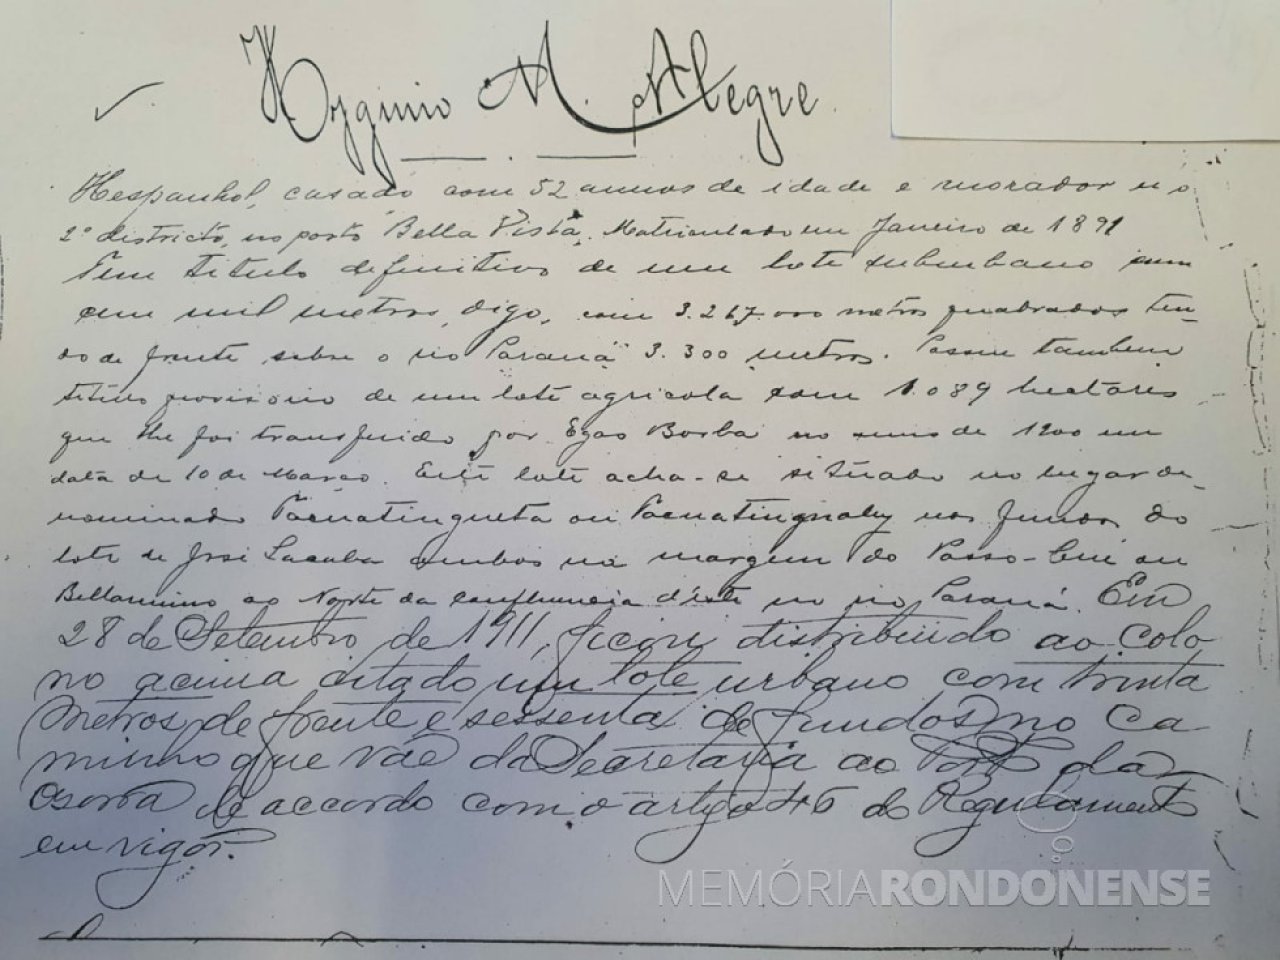 Hygginio M. Alegre
Hespanhol, casado com 52 annos de idade e morador no
2º districto, no porto Bella Vista. Matriculado em Janeiro de 1891
Tem titulo definitivo de um lote suburbano com
cem mil metros, digo, com 3.267.000 metros quadrados ten-
do de frente sobre o rio Paraná 3.300 metros. Possue tambem
titulo provisorio de um lote agricola com 1.089 hectares
que lhe foi transferido por Egas Borba no anno de 1900 em
data de 10 de Março. Este lote acha-se situado no lugar de-
nominado Pacuatingueta ou nos fundos do
lote de José Lacuba ambos na margem do Passo-Cuê ou
Bellarmino ao Norte da confluencia d'este no rio Paraná. Em
28 de Setembro de 1911, ficou distribuido ao Colo
no acima citado um lote urbano com trinta
metros de frente e sessenta de fundos no Ca
minho que vae da Secretaria ao Porto da
de accordo com o artigo 46 do Regulamento
em vigor.
MEMÓRIARONDONENSE